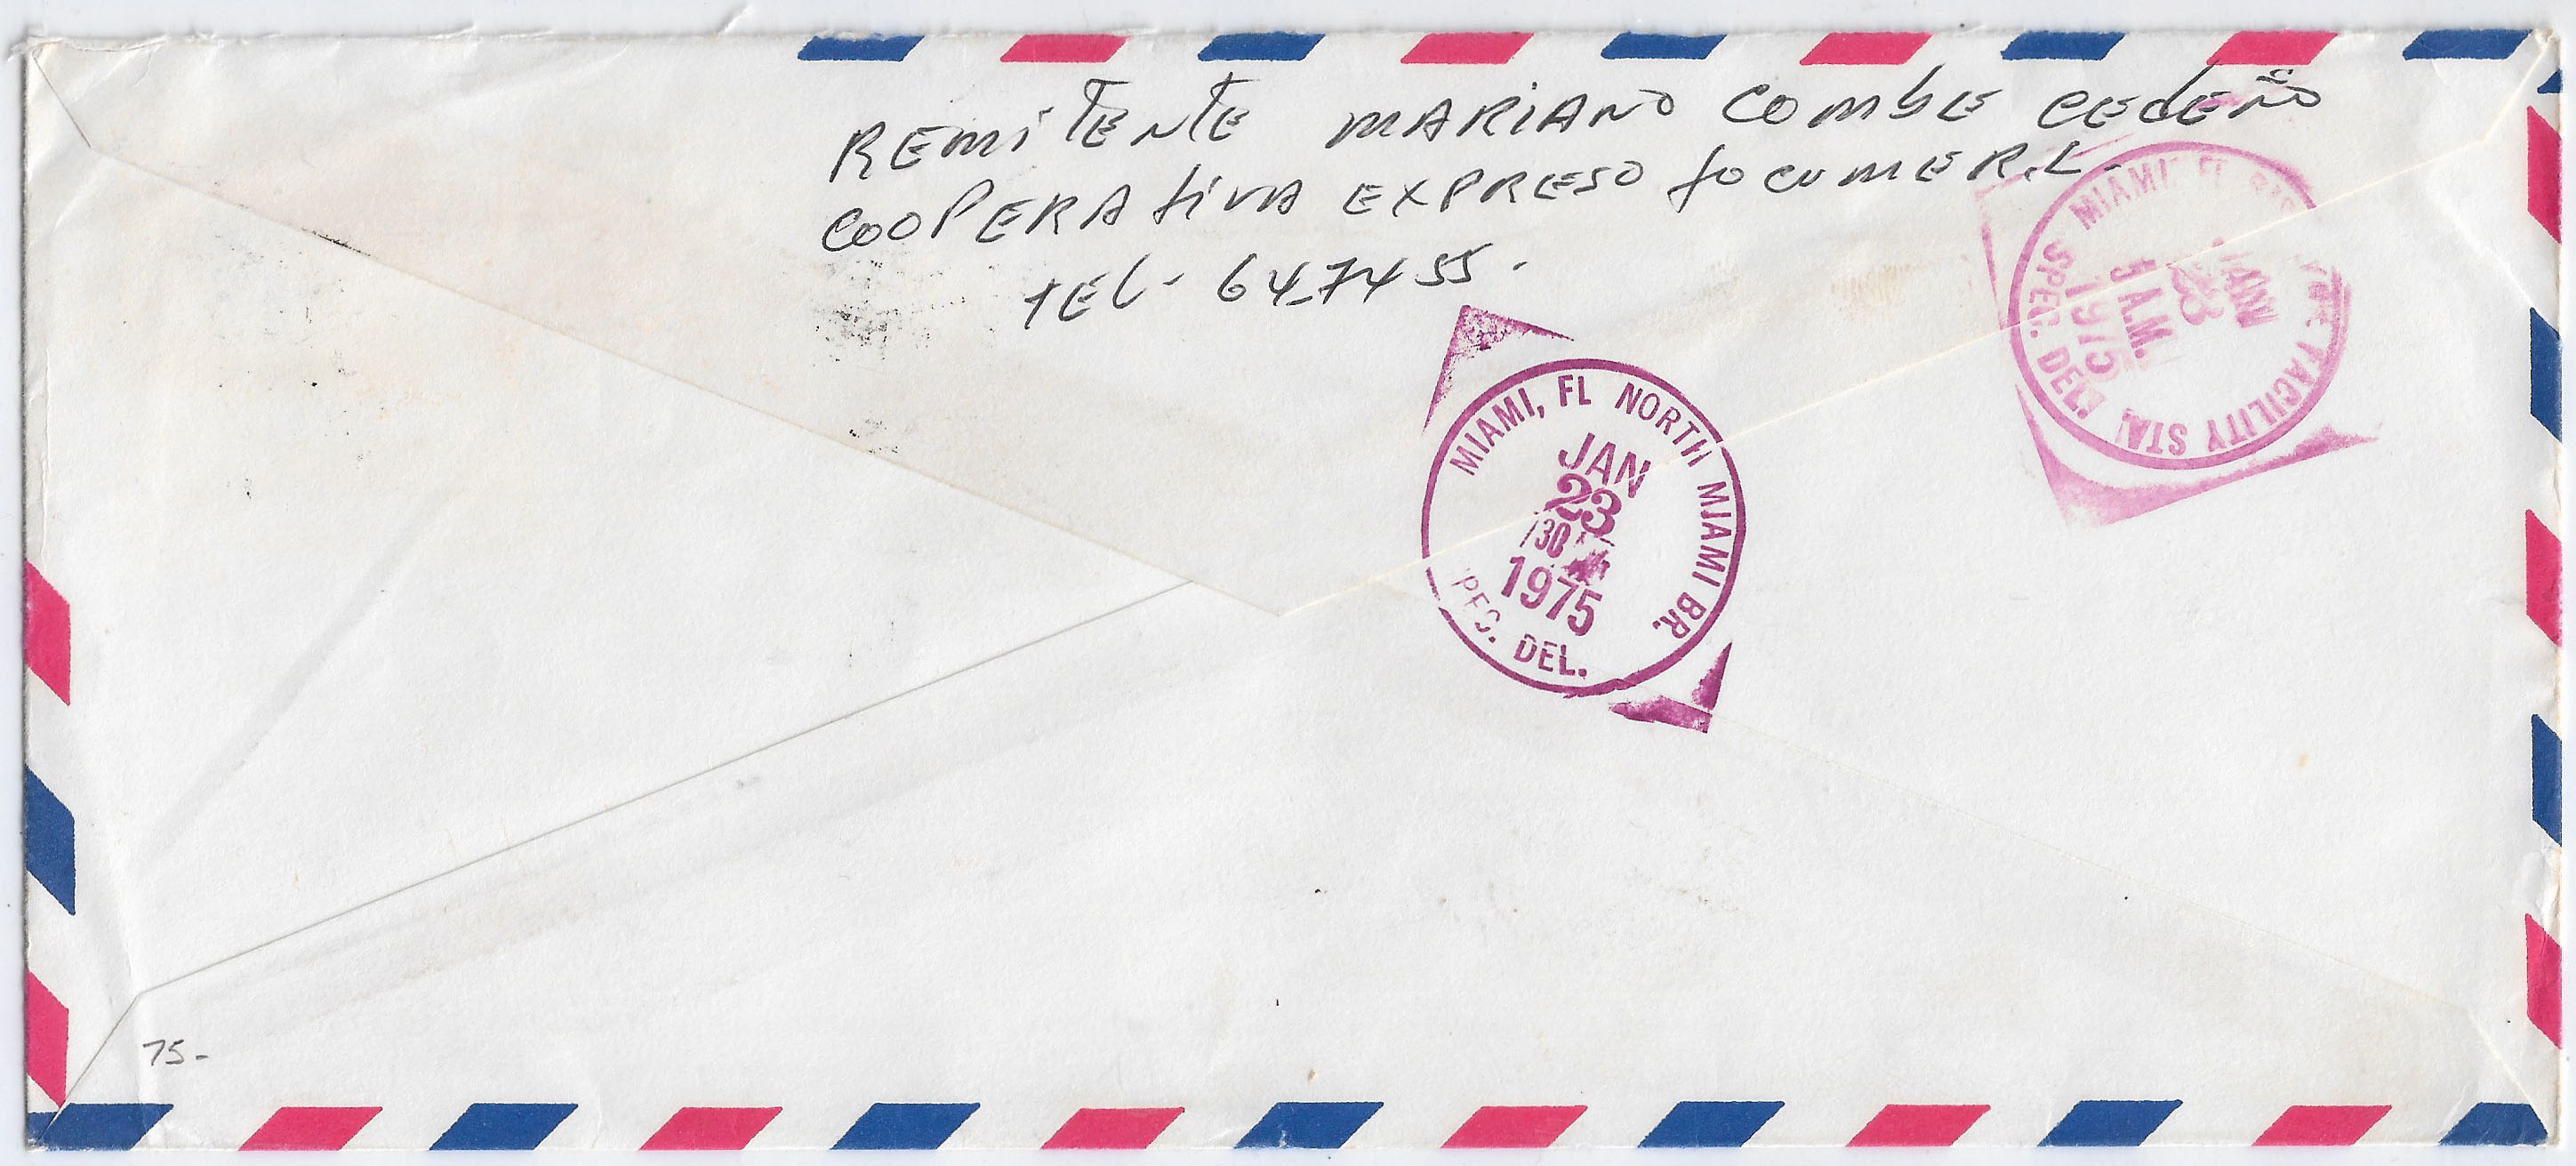 REMITENTE MARIANO COMBE CEDEÑO
COOPERATIVA EXPRESO TOCUME R.L.
TEL. 64-7455.
MIAMI, FL
FACILITY STA.
JAN
23
5 A.M.
1975
SPEC. DEL.
MIAMI, FL NORTH MIAMI BR.
JAN
23
30
1975
PEC. DEL.
75-